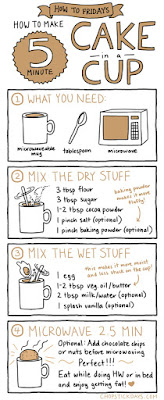 HOW TO FRIDAYS
HOW TO MAKE
5
MINUTE
CAKE
in a
CUP
1 WHAT YOU NEED:
microwaveable
mug
tablespoon
microwave
2 MIX THE DRY STUFF
3 tbsp flour
3 tbsp sugar
1-2 tbsp cocoa powder
1 pinch salt (optional)
1 pinch baking powder (optional)
baking powder
makes it more
fluffy!
3 MIX THE WET STUFF
this makes it more moist
and less stuck on the cup!
1 egg
1-2 tbsp veg. oil/butter
2 tbsp milk/water (optional)
1 splash vanilla (optional)
4 MICROWAVE 2.5 MIN
Optional: Add chocolate chips
or nuts before microwaving
Perfect!!!
Eat while doing HW or in bed
and enjoy getting fat!